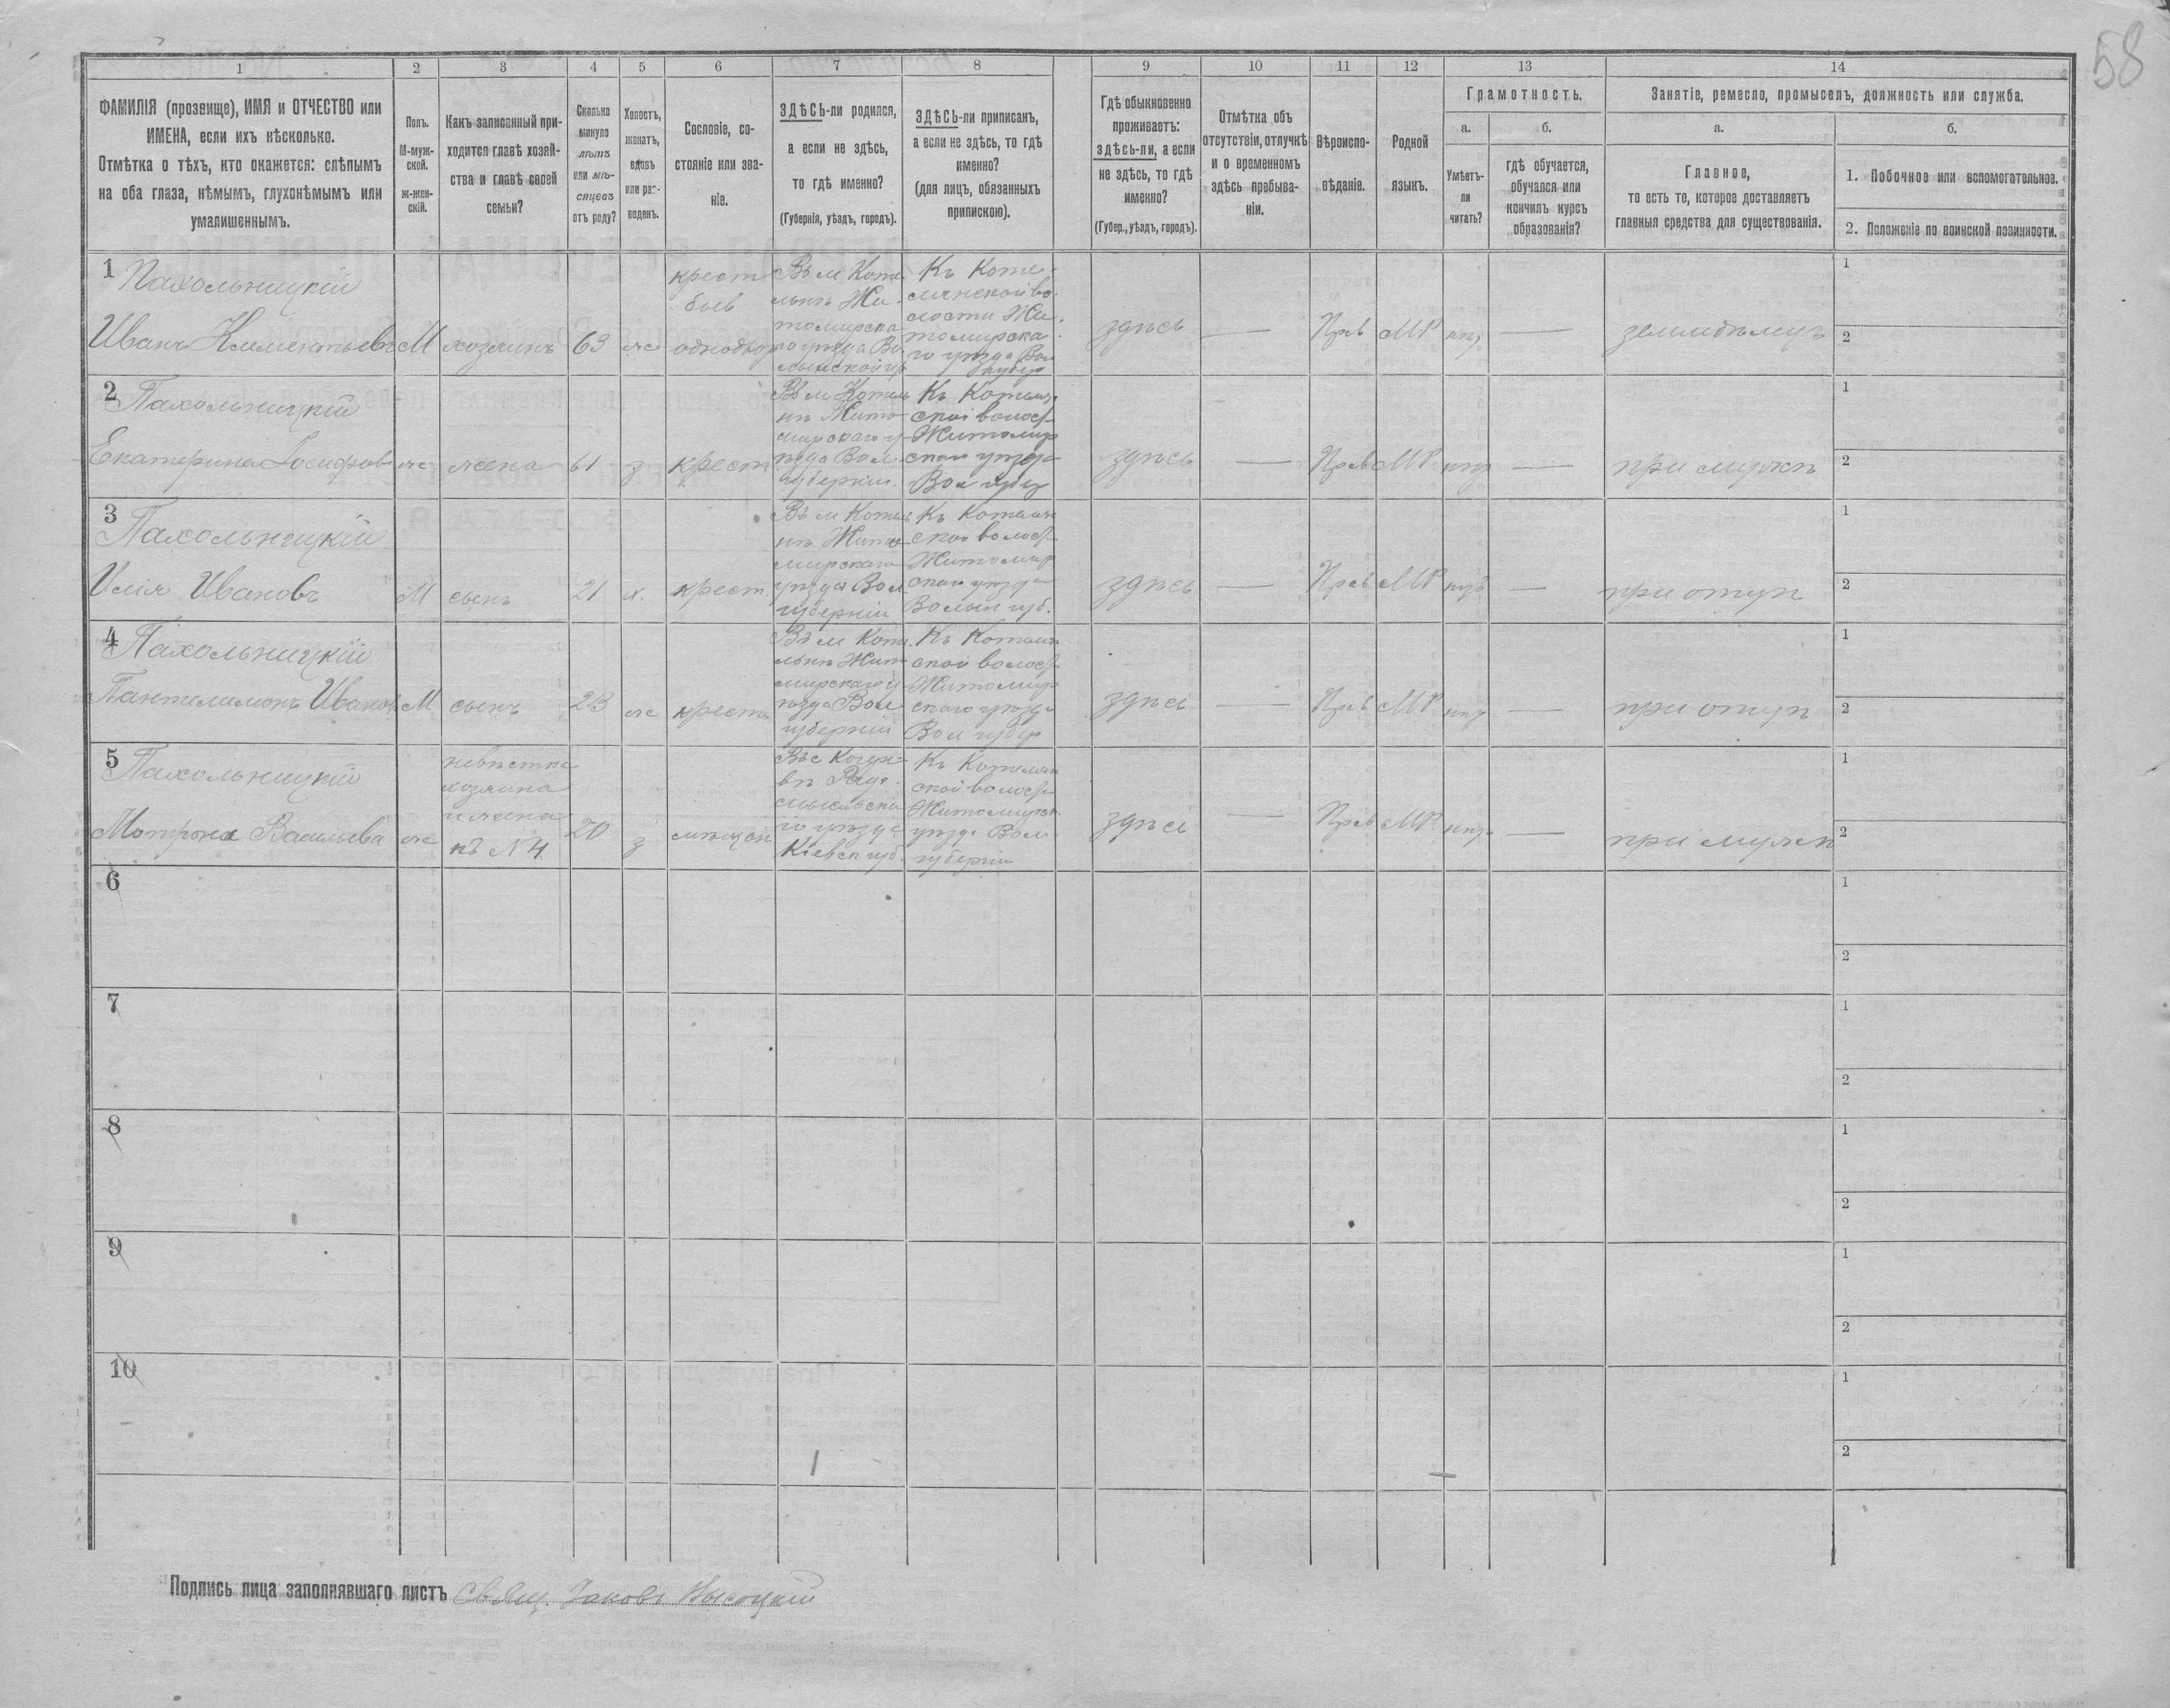 58
1
2
3
4
5
6
7
8
9
10
11
12
13
14
ФАМИЛІЯ (прозвище), ИМЯ и ОТЧЕСТВО или
ИМЕНА, если ихъ нѣсколько.
Отмѣтка о тѣхъ, кто окажется: слѣпымъ
на оба глаза, нѣмымъ, глухонѣмымъ или
умалишеннымъ.
Полъ.
М-муж-
ской.
ж-жен-
скій.
Какъ записанный при-
ходится главѣ хозяй-
ства и главѣ своей
семьи?
Сколько
минуло
лѣтъ
или мѣ-
сяцевъ
отъ роду?
Холостъ,
женатъ,
вдовъ
или раз-
веденъ.
Сословіе, со-
стояніе или зва-
ніе.
ЗДѢСЬ-ли родился,
а если не здѣсь,
то гдѣ именно?
(Губернія, уѣздъ, городъ).
ЗДѢСЬ-ли приписанъ,
а если не здѣсь, то гдѣ
именно?
(для лицъ, обязанныхъ
припискою).
Гдѣ обыкновенно
проживаетъ:
здѣсь-ли, а если
не здѣсь, то гдѣ
именно?
(Губер., уѣздъ, городъ).
Отмѣтка объ
отсутствіи, отлучкѣ
и о временномъ
здѣсь пребыва-
ніи.
Вѣроиспо-
вѣданіе.
Родной
языкъ.
Грамотность.
а.
б.
Умѣетъ-
ли
читать?
гдѣ обучается,
обучался или
кончилъ курсъ
образованія?
Занятіе, ремесло, промыселъ, должность или служба.
а.
б.
Главное,
то есть то, которое доставляетъ
главныя средства для существованія.
1. Побочное или вспомогательное.
2. Положеніе по воинской повинности.
1
Пахольницкій
Иванъ Климентьевъ
М
хозяинъ
63
ж
крест
бывъ
однодвор
Въ м Коте
льнѣ Жи
томирска
го уѣзда Во
лынской гу
Къ Коте
лянской во
лости Жи
томирска
го уѣзда Вол
губер
здѣсь
—
Прав
МР
—
земледѣлецъ
1
2
2
Пахольницкій
Екатерина Іосифов
ж
жена
61
з
крест
Въ м Котель
нѣ Жито
мирскаго у
ѣзда Вол
губерніи.
Къ Котелян
ской волост
Житомир
скаго уѣзда
Вол губер
здѣсь
—
Прав
МР
—
при мужѣ
1
2
3
Пахольницкій
Илія Ивановъ
М
сынъ
21
х.
крест.
Въ м Котель
нѣ Жито
мирскаго
уѣзда Вол
губерніи
Къ Котелян
ской волост
Житомир
скаго уѣзда
Волын губ.
здѣсь
—
Прав
МР
—
при отцѣ
1
2
4
Пахольницкій
Пантелимонъ Иванов
М
сынъ
23
ж
крест
Въ м Коте
льнѣ Жито
мирскаго у
ѣзда Вол
губерніи
Къ Котелян
ской волост
Житомир
скаго уѣзда
Вол губер
здѣсь
—
Прав
МР
—
при отцѣ
1
2
5
Пахольницкій
Мотрона Васильева
ж
невѣстка
хозяина
и жена
къ N 4
20
з
мѣщан
Радо
мысльска
го уѣзда
Кіевск губ.
Къ Котелян
ской волост
Житомирск
уѣзда Вол
губерніи
здѣсь
—
Прав
МР
—
при мужѣ
1
2
6
1
2
7
1
2
8
1
2
9
1
2
10
1
2
Подпись лица заполнявшаго листъ Свящ. Іаковъ Высоцкій